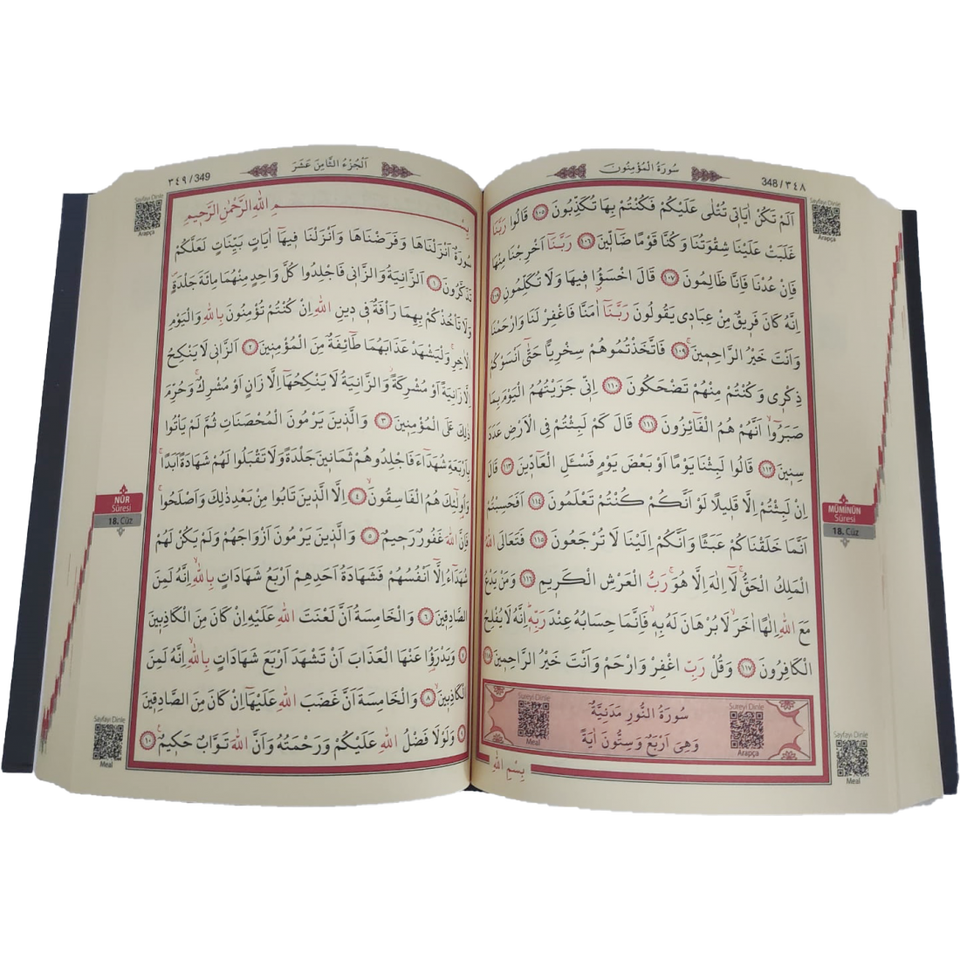 سُورَةُ الْمُؤْمِنُونَ
348 / ٣٤٨
Sayfayı Dinle
Arapça
اَلَمْ تَكُنْ اٰيَاتٖي تُتْلٰى عَلَيْكُمْ فَكُنْتُمْ بِهَا تُكَذِّبُونَ ﴿١٠٥﴾ قَالُوا رَبَّنَا
غَلَبَتْ عَلَيْنَا شِقْوَتُنَا وَكُنَّا قَوْمًا ضَٓالّٖينَ ﴿١٠٦﴾ رَبَّنَٓا اَخْرِجْنَا مِنْهَا
فَاِنْ عُدْنَا فَاِنَّا ظَالِمُونَ ﴿١٠٧﴾ قَالَ اخْسَؤُ۫ا فٖيهَا وَلَا تُكَلِّمُونِ ﴿١٠٨﴾
اِنَّهُ كَانَ فَرٖيقٌ مِنْ عِبَادٖي يَقُولُونَ رَبَّنَٓا اٰمَنَّا فَاغْفِرْ لَنَا وَارْحَمْنَا
وَاَنْتَ خَيْرُ الرَّاحِمٖينَ ﴿١٠٩﴾ فَاتَّخَذْتُمُوهُمْ سِخْرِيًّا حَتّٰٓى اَنْسَوْكُمْ
ذِكْرٖي وَكُنْتُمْ مِنْهُمْ تَضْحَكُونَ ﴿١١٠﴾ اِنّٖي جَزَيْتُهُمُ الْيَوْمَ بِمَا
صَبَرُٓوا اَنَّهُمْ هُمُ الْفَٓائِزُونَ ﴿١١١﴾ قَالَ كَمْ لَبِثْتُمْ فِي الْاَرْضِ عَدَدَ
سِنٖينَ ﴿١١٢﴾ قَالُوا لَبِثْنَا يَوْمًا اَوْ بَعْضَ يَوْمٍ فَسْـَٔلِ الْعَٓادّٖينَ ﴿١١٣﴾ قَالَ
اِنْ لَبِثْتُمْ اِلَّا قَلٖيلًا لَوْ اَنَّكُمْ كُنْتُمْ تَعْلَمُونَ ﴿١١٤﴾ اَفَحَسِبْتُمْ
اَنَّمَا خَلَقْنَاكُمْ عَبَثًا وَاَنَّكُمْ اِلَيْنَا لَا تُرْجَعُونَ ﴿١١٥﴾ فَتَعَالَى اللّٰهُ
الْمَلِكُ الْحَقُّۚ لَٓا اِلٰهَ اِلَّا هُوَۚ رَبُّ الْعَرْشِ الْكَرٖيمِ ﴿١١٦﴾ وَمَنْ يَدْعُ
مَعَ اللّٰهِ اِلٰهًا اٰخَرَۙ لَا بُرْهَانَ لَهُ بِهٖۙ فَاِنَّمَا حِسَابُهُ عِنْدَ رَبِّهٖؕ اِنَّهُ لَا يُفْلِحُ
الْكَافِرُونَ ﴿١١٧﴾ وَقُلْ رَبِّ اغْفِرْ وَارْحَمْ وَاَنْتَ خَيْرُ الرَّاحِمٖينَ ﴿١١٨﴾
سُورَةُ النُّورِ مَدَنِيَّةٌ
وَهِيَ اَرْبَعٌ وَسِتُّونَ اٰيَةً
Sureyi Dinle
Arapça
Sureyi Dinle
Meal
بِسْمِ اللّٰهِ
MÜMİNÛN
Sûresi
18. Cüz
Sayfayı Dinle
Meal
اَلْجُزْءُ الثَّامِنَ عَشَرَ
٣٤٩ / 349
Sayfayı Dinle
Arapça
بِسْمِ اللّٰهِ الرَّحْمٰنِ الرَّحٖيمِ
سُورَةٌ اَنْزَلْنَاهَا وَفَرَضْنَاهَا وَاَنْزَلْنَا فٖيهَٓا اٰيَاتٍ بَيِّنَاتٍ لَعَلَّكُمْ
تَذَكَّرُونَ ﴿١﴾ اَلزَّانِيَةُ وَالزَّانٖي فَاجْلِدُوا كُلَّ وَاحِدٍ مِنْهُمَا مِائَةَ جَلْدَةٍۖ
وَلَا تَأْخُذْكُمْ بِهِمَا رَأْفَةٌ فٖي دٖينِ اللّٰهِ اِنْ كُنْتُمْ تُؤْمِنُونَ بِاللّٰهِ وَالْيَوْمِ
الْاٰخِرِۚ وَلْيَشْهَدْ عَذَابَهُمَا طَٓائِفَةٌ مِنَ الْمُؤْمِنٖينَ ﴿٢﴾ اَلزَّانٖي لَا يَنْكِحُ
اِلَّا زَانِيَةً اَوْ مُشْرِكَةًؗ وَالزَّانِيَةُ لَا يَنْكِحُهَٓا اِلَّا زَانٍ اَوْ مُشْرِكٌۚ وَحُرِّمَ
ذٰلِكَ عَلَى الْمُؤْمِنٖينَ ﴿٣﴾ وَالَّذٖينَ يَرْمُونَ الْمُحْصَنَاتِ ثُمَّ لَمْ يَأْتُوا
بِاَرْبَعَةِ شُهَدَٓاءَ فَاجْلِدُوهُمْ ثَمَانٖينَ جَلْدَةً وَلَا تَقْبَلُوا لَهُمْ شَهَادَةً اَبَدًاۚ
وَاُو۬لٰٓئِكَ هُمُ الْفَاسِقُونَۙ ﴿٤﴾ اِلَّا الَّذٖينَ تَابُوا مِنْ بَعْدِ ذٰلِكَ وَاَصْلَحُواۚ
فَاِنَّ اللّٰهَ غَفُورٌ رَحٖيمٌ ﴿٥﴾ وَالَّذٖينَ يَرْمُونَ اَزْوَاجَهُمْ وَلَمْ يَكُنْ لَهُمْ
شُهَدَٓاءُ اِلَّٓا اَنْفُسُهُمْ فَشَهَادَةُ اَحَدِهِمْ اَرْبَعُ شَهَادَاتٍ بِاللّٰهِۙ اِنَّهُ لَمِنَ
الصَّادِقٖينَ ﴿٦﴾ وَالْخَامِسَةُ اَنَّ لَعْنَتَ اللّٰهِ عَلَيْهِ اِنْ كَانَ مِنَ الْكَاذِبٖينَ
﴿٧﴾ وَيَدْرَؤُ۬ا عَنْهَا الْعَذَابَ اَنْ تَشْهَدَ اَرْبَعَ شَهَادَاتٍ بِاللّٰهِۙ اِنَّهُ لَمِنَ
الْكَاذِبٖينَۙ ﴿٨﴾ وَالْخَامِسَةَ اَنَّ غَضَبَ اللّٰهِ عَلَيْهَٓا اِنْ كَانَ مِنَ الصَّادِقٖينَ
﴿٩﴾ وَلَوْلَا فَضْلُ اللّٰهِ عَلَيْكُمْ وَرَحْمَتُهُ وَاَنَّ اللّٰهَ تَوَّابٌ حَكٖيمٌ ﴿١٠﴾
NÛR
Sûresi
18. Cüz
Sayfayı Dinle
Meal